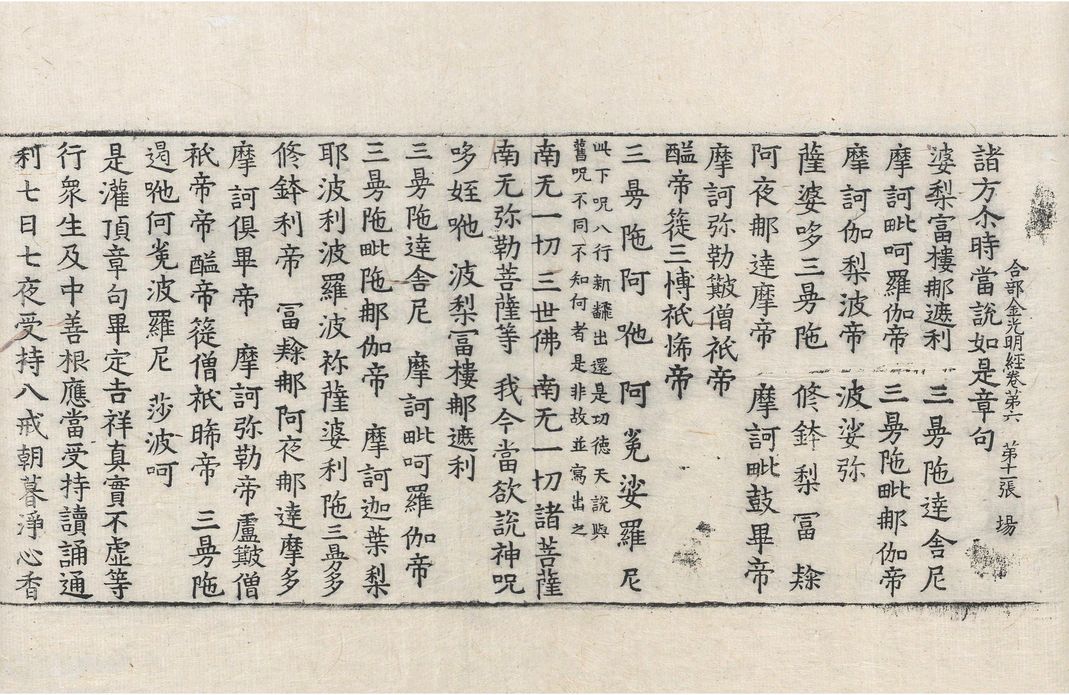 合部金光明經卷第六　第十二張　場
諸方尒時當說如是章句
婆梨富樓那遮利　三曼陁達舍尼
摩訶毗呵羅伽帝　三曼陁毗那伽帝
摩訶伽梨波帝　波娑弥
薩婆哆三曼陁　修鉢梨冨隸
阿夜那達摩帝　摩訶毗鼓畢帝
摩訶弥勒簸僧祇帝
醯帝簁三博祇悕帝
三曼陁阿咃　阿㝹娑羅尼
此下呪八行新飜出還是功德天說與
舊呪不同不知何者是非故並寫出之
南无一切三世佛　南无一切諸菩薩
南无弥勒菩薩等　我今當欲說神呪
哆姪咃　波梨冨樓那遮利
三曼陁達舍尼　摩訶毗呵羅伽帝
三曼陁毗陁那伽帝　摩訶迦葉梨
耶波利波羅波祢薩婆利陁三曼多
修鉢利帝　冨隸那阿夜那達摩多
摩訶俱畢帝　摩訶弥勒帝盧簸僧
祇帝帝醯帝簁僧祇睎帝　三曼陁
遏咃何㝹波羅尼　莎波呵
是灌頂章句畢定吉祥真實不虛等
行衆生及中善根應當受持讀誦通
利七日七夜受持八戒朝暮淨心香